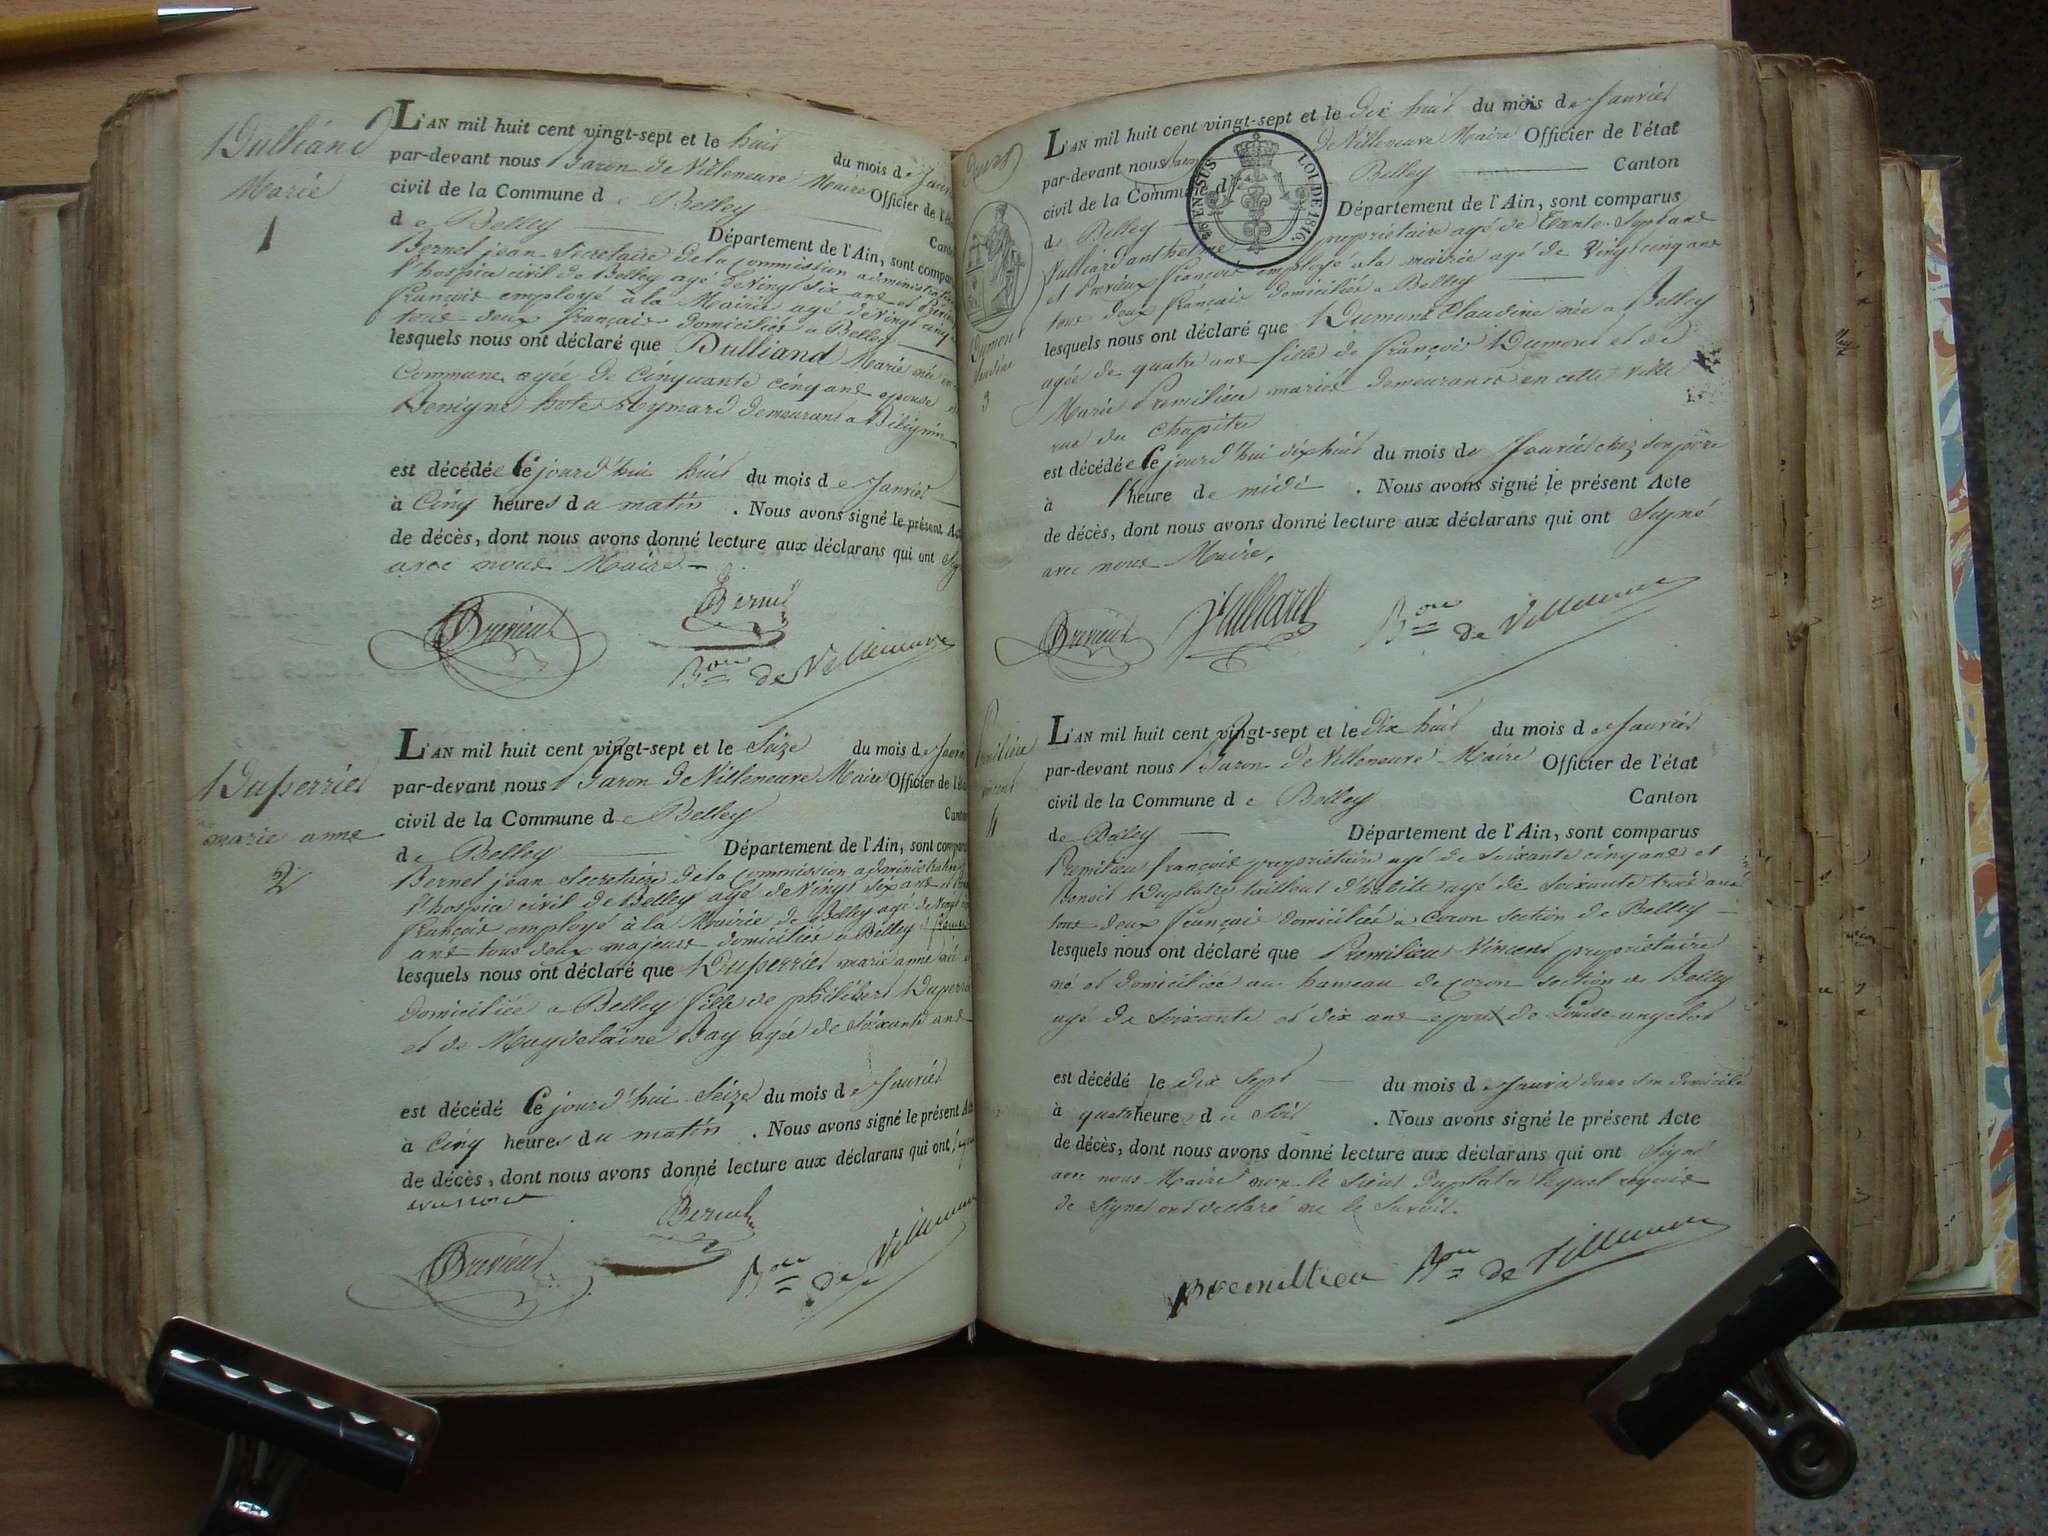 Dulliand
Marie
1
L'AN mil huit cent vingt-sept et le huit du mois de Janv
par-devant nous Baron de Villeneuve Maire Officier de l'é
civil de la Commune de Belley Canton
de Belley Département de l'Ain, sont compar
Bernel jean Secretaire de la Commission administrative
l'hospice civil de Belley agé de Vingt six ans et
françois employé à la Mairie agé de Vingt cinq
tous deux français domiciliés a Belley
lesquels nous ont déclaré que Dulliand Marie née en
Commune agée de Cinquante cinq ans epouse
Benigne Aymard demeurant a
est décédée Ce jourd'hui huit du mois de Janvier
à Cinq heures du matin . Nous avons signé le présent Ac
de décès, dont nous avons donné lecture aux déclarans qui ont Sig
avec nous Maire
Prévieux
Bernel
Bon de Villeneuve
Duperrier
marie anne
2
L'AN mil huit cent vingt-sept et le Seize du mois de Janv
par-devant nous Baron de Villeneuve Maire Officier de l'é
civil de la Commune de Belley Canton
de Belley Département de l'Ain, sont compar
Bernel jean Secretaire de la Commission administrative
l'hospice civil de Belley agé de Vingt six ans et
françois employé à la Mairie de Belley agé de Vingt
ans tous deux majeurs domiciliés a Belley
lesquels nous ont déclaré que Duperrier marie anne née
domiciliée a Belley fille de philibert Duperrier
et de Magdelaine Bay agée de soixante ans
est décédé Ce jourd'hui Seize du mois de Janvier
à Cinq heures du matin . Nous avons signé le présent Acte
de décès, dont nous avons donné lecture aux déclarans qui ont signé
avec nous
Prévieux
Bernel
Bon de Villeneuve
Dumont
Claudine
3
L'AN mil huit cent vingt-sept et le Dix huit du mois de Janvier
par-devant nous Baron de Villeneuve Maire Officier de l'état
civil de la Commune de Belley Canton
EN SUS LOI DE 1816.
de Belley Département de l'Ain, sont comparus
Vulliard anthelme propriétaire agé de Trente Sept ans
et Prévieux françois employé a la mairie agé de Vingt cinq ans
tous deux français domiciliés a Belley
lesquels nous ont déclaré que Dumont Claudine née a Belley
agée de quatre ans fille de françois Dumont et de
Marie Premilieu mariés demeurants en cette Ville
rue du Chapitre
est décédée Ce jourd'hui dix huit du mois de Janvier chez son père
à heure de midi . Nous avons signé le présent Acte
de décès, dont nous avons donné lecture aux déclarans qui ont Signé
avec nous Maire.
Prévieux
Vulliard
Bon de Villeneuve
Premilieu
vincent
4
L'AN mil huit cent vingt-sept et le Dix huit du mois de Janvier
par-devant nous Baron de Villeneuve Maire Officier de l'état
civil de la Commune de Belley Canton
de Belley Département de l'Ain, sont comparus
Premilieu françois propriétaire agé de soixante cinq ans et
Benoit Duplatre tailleur d'habits agé de soixante trois ans
tous deux français domiciliés a Coron section de Belley
lesquels nous ont déclaré que Premilieu Vincent propriétaire
né et domicilié au hameau de Coron section de Belley
agé de soixante et dix ans epoux de Louise
est décédé le dix sept du mois de Janvier dans son domicile
à quatre heures du Soir . Nous avons signé le présent Acte
de décès, dont nous avons donné lecture aux déclarans qui ont Signé
avec nous Maire non le Sieur Duplatre lequel requis
de signer ont declaré ne le Savoir.
premillieu Bon de Villeneuve